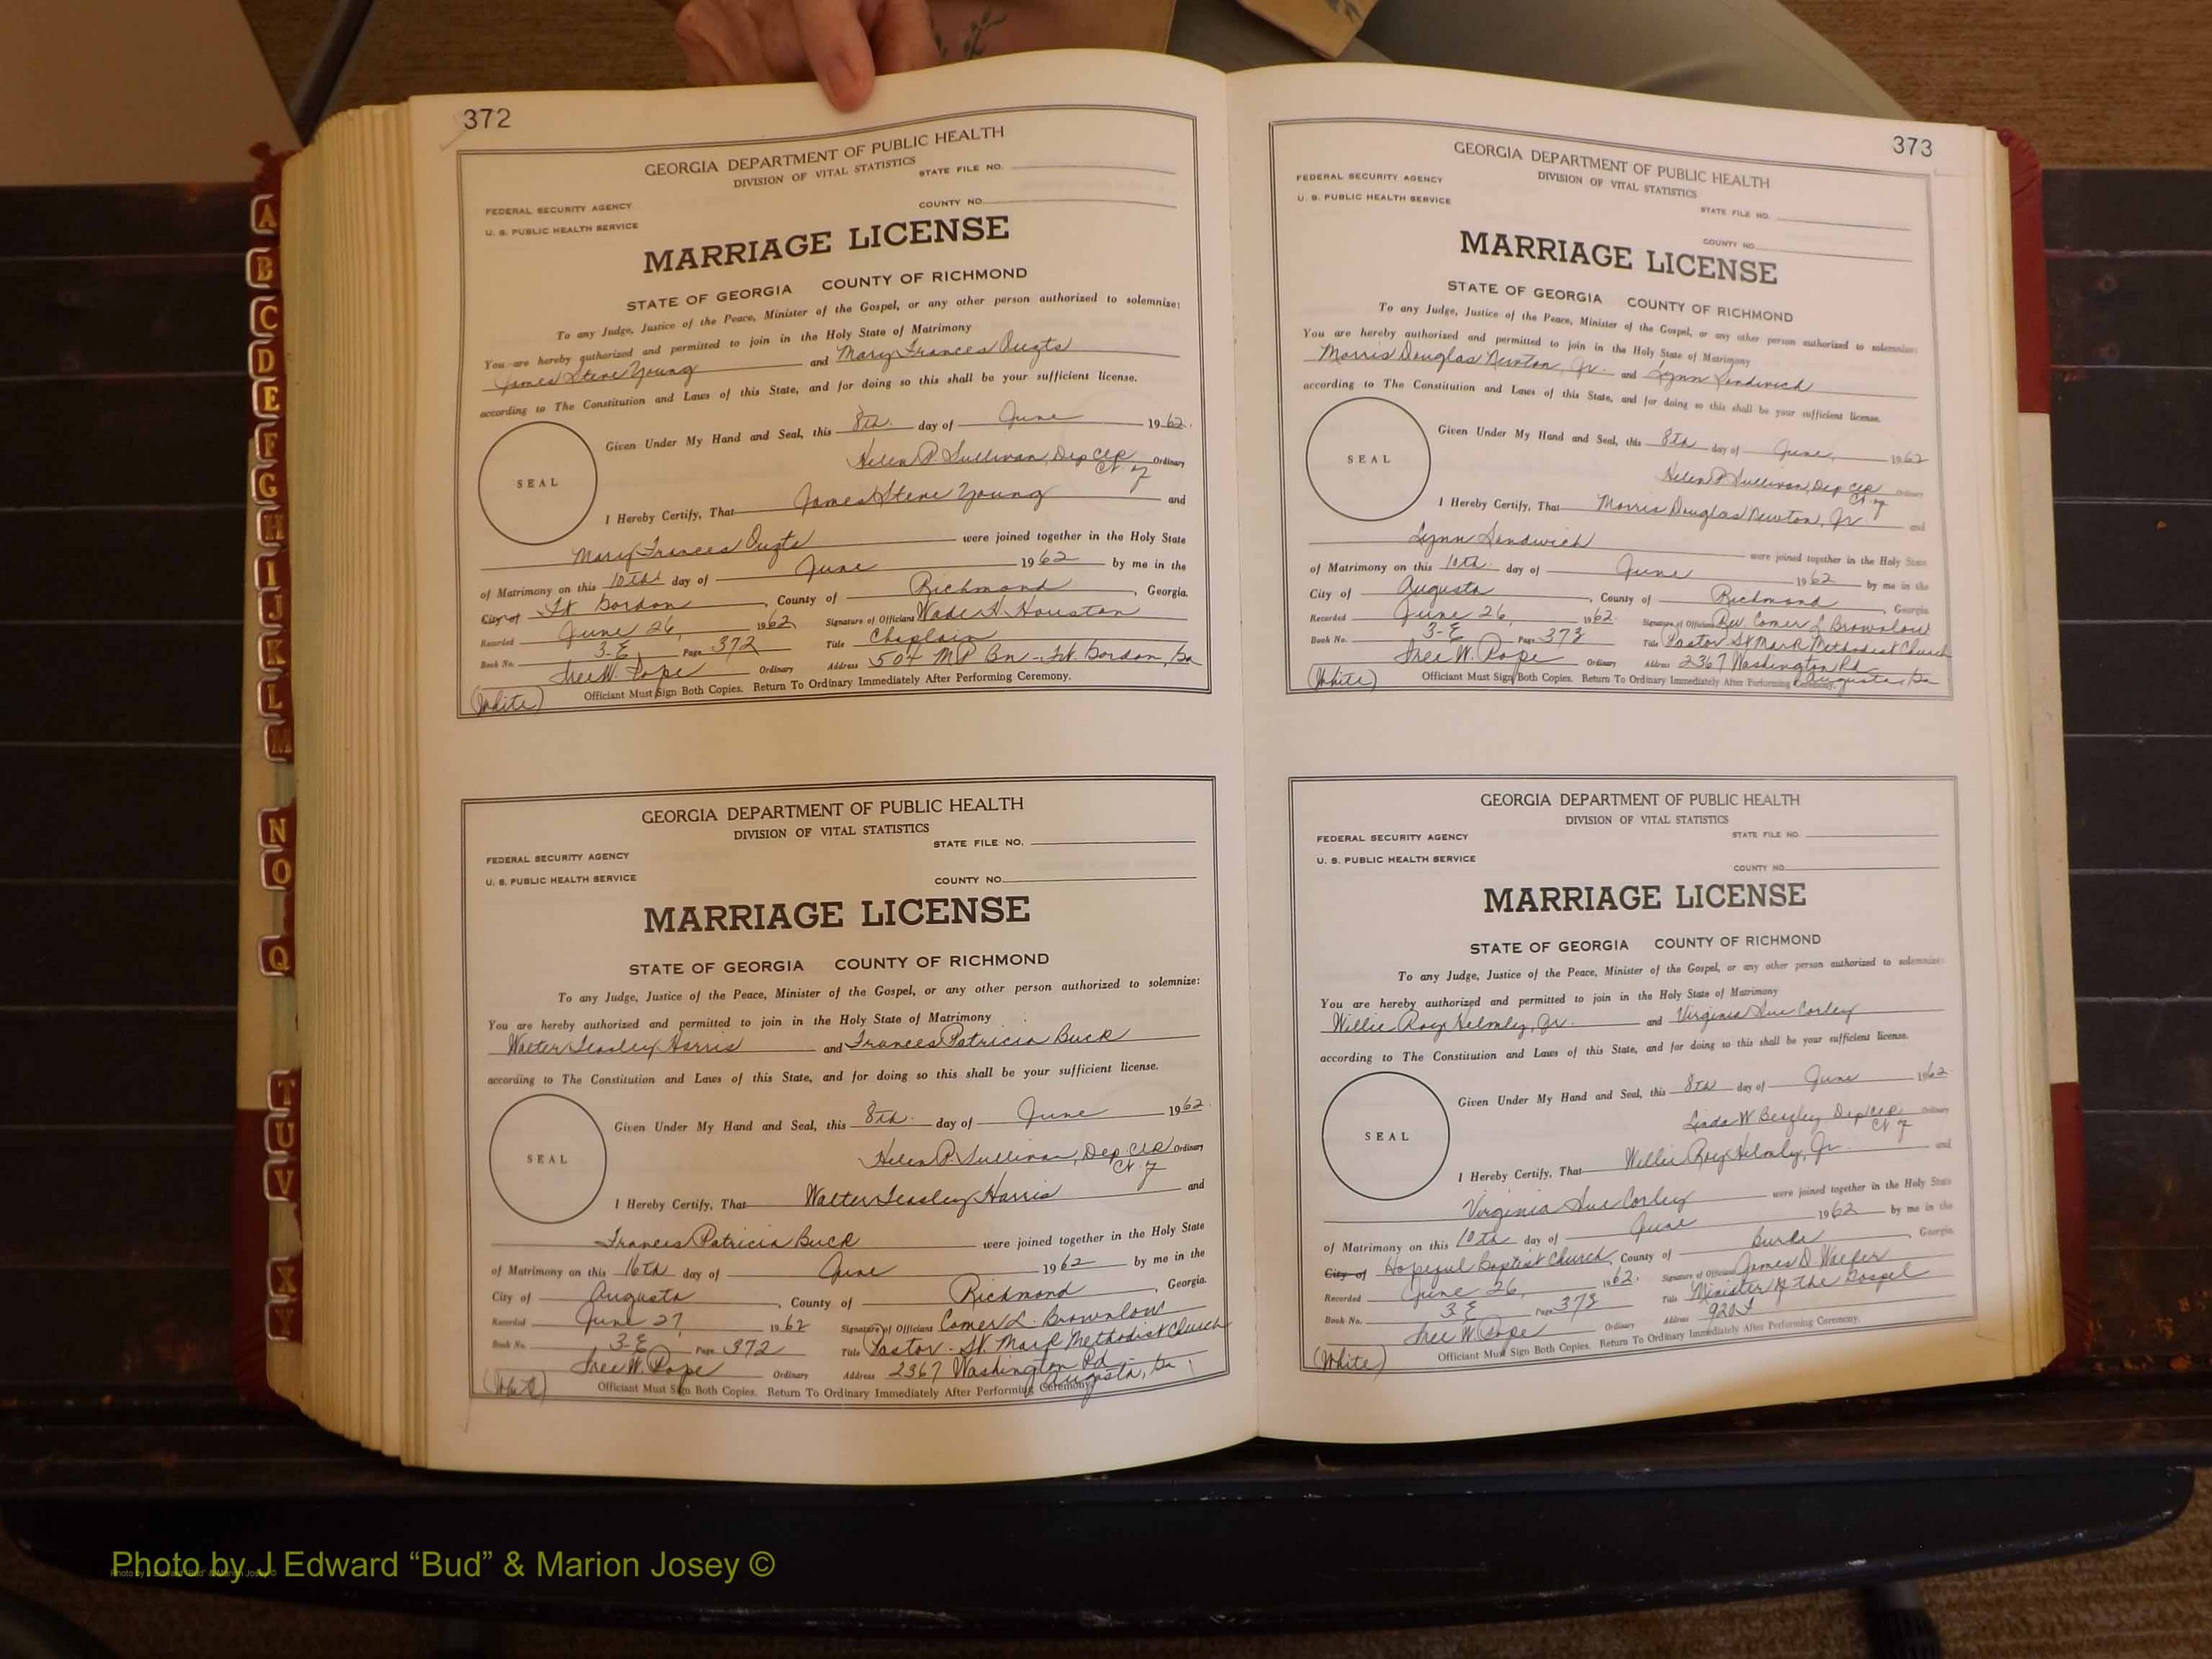 372
GEORGIA DEPARTMENT OF PUBLIC HEALTH
DIVISION OF VITAL STATISTICS
STATE FILE NO.
FEDERAL SECURITY AGENCY
COUNTY NO.
U. S. PUBLIC HEALTH SERVICE
MARRIAGE LICENSE
STATE OF GEORGIA COUNTY OF RICHMOND
To any Judge, Justice of the Peace, Minister of the Gospel, or any other person authorized to solemnize:
You are hereby authorized and permitted to join in the Holy State of Matrimony
James Steve Young and Mary Frances Ouzts
according to The Constitution and Laws of this State, and for doing so this shall be your sufficient license.
Given Under My Hand and Seal, this 8th. day of June 1962.
Helen P. Sullivan, Dep Clk Ordinary
SEAL
I Hereby Certify, That James Steve Young and
Mary Frances Ouzts were joined together in the Holy State
of Matrimony on this 10th day of June 1962 by me in the
City of Ft. Gordon, County of Richmond, Georgia.
Recorded June 26, 1962 Signature of Officiant Wade H. Houston
Book No. 3-E Page 372 Title Chaplain
Tree W. Pope Ordinary Address 504 MP Bn - Ft. Gordon, Ga
(White) Officiant Must Sign Both Copies. Return To Ordinary Immediately After Performing Ceremony.
GEORGIA DEPARTMENT OF PUBLIC HEALTH
DIVISION OF VITAL STATISTICS
STATE FILE NO.
FEDERAL SECURITY AGENCY
U. S. PUBLIC HEALTH SERVICE
COUNTY NO.
MARRIAGE LICENSE
STATE OF GEORGIA COUNTY OF RICHMOND
To any Judge, Justice of the Peace, Minister of the Gospel, or any other person authorized to solemnize:
You are hereby authorized and permitted to join in the Holy State of Matrimony
Walter Teasley Harris and Frances Patricia Buck
according to The Constitution and Laws of this State, and for doing so this shall be your sufficient license.
Given Under My Hand and Seal, this 8th. day of June 1962.
Helen P. Sullivan, Dep. Clk Ordinary
SEAL
I Hereby Certify, That Walter Teasley Harris and
Frances Patricia Buck were joined together in the Holy State
of Matrimony on this 16th day of June 1962 by me in the
City of Augusta, County of Richmond, Georgia.
Recorded June 27, 1962 Signature of Officiant Comer L. Brownlow
Book No. 3-E Page 372 Title Pastor - St. Mark Methodist Church
Tree W. Pope Ordinary Address 2367 Washington Rd
Augusta, Ga
(White) Officiant Must Sign Both Copies. Return To Ordinary Immediately After Performing Ceremony.
373
GEORGIA DEPARTMENT OF PUBLIC HEALTH
DIVISION OF VITAL STATISTICS
FEDERAL SECURITY AGENCY
U. S. PUBLIC HEALTH SERVICE
STATE FILE NO.
COUNTY NO.
MARRIAGE LICENSE
STATE OF GEORGIA COUNTY OF RICHMOND
To any Judge, Justice of the Peace, Minister of the Gospel, or any other person authorized to solemnize:
You are hereby authorized and permitted to join in the Holy State of Matrimony
Morris Douglas Newton, Jr. and Lynn Sandwich
according to The Constitution and Laws of this State, and for doing so this shall be your sufficient license.
Given Under My Hand and Seal, this 8th day of June, 1962
Helen P. Sullivan, Dep Clk Ordinary
SEAL
I Hereby Certify, That Morris Douglas Newton, Jr. and
Lynn Sandwich were joined together in the Holy State
of Matrimony on this 10th. day of June 1962 by me in the
City of Augusta, County of Richmond, Georgia
Recorded June 26, 1962. Signature of Officiant Rev Comer L. Brownlow
Book No. 3-E Page 373 Title Pastor St Mark Methodist Church
Tree W. Pope Ordinary Address 2367 Washington Rd
Augusta, Ga
(White) Officiant Must Sign Both Copies. Return To Ordinary Immediately After Performing Ceremony.
GEORGIA DEPARTMENT OF PUBLIC HEALTH
DIVISION OF VITAL STATISTICS
FEDERAL SECURITY AGENCY
STATE FILE NO.
U. S. PUBLIC HEALTH SERVICE
COUNTY NO.
MARRIAGE LICENSE
STATE OF GEORGIA COUNTY OF RICHMOND
To any Judge, Justice of the Peace, Minister of the Gospel, or any other person authorized to solemnize:
You are hereby authorized and permitted to join in the Holy State of Matrimony
Willie Roy Helmly, Jr. and Virginia Sue Corley
according to The Constitution and Laws of this State, and for doing so this shall be your sufficient license.
Given Under My Hand and Seal, this 8th day of June 1962
Linda W. Beazley, Dep Clk Ordinary
SEAL
I Hereby Certify, That Willie Roy Helmly, Jr. and
Virginia Sue Corley were joined together in the Holy State
of Matrimony on this 10th day of June 1962 by me in the
City of Hopeful Baptist Church, County of Burke, Georgia
Recorded June 26, 1962. Signature of Officiant James D.
Book No. 3 E Page 373 Title Minister of the Gospel
Tree W. Pope Ordinary Address
(White) Officiant Must Sign Both Copies. Return To Ordinary Immediately After Performing Ceremony.
A
B
C
D
E
F
G
H
I
J
K
L
M
N
O
Q
T
U
V
X
Y
Photo by J Edward “Bud” & Marion Josey ©
Photo by J Edward “Bud” & Marion Josey ©